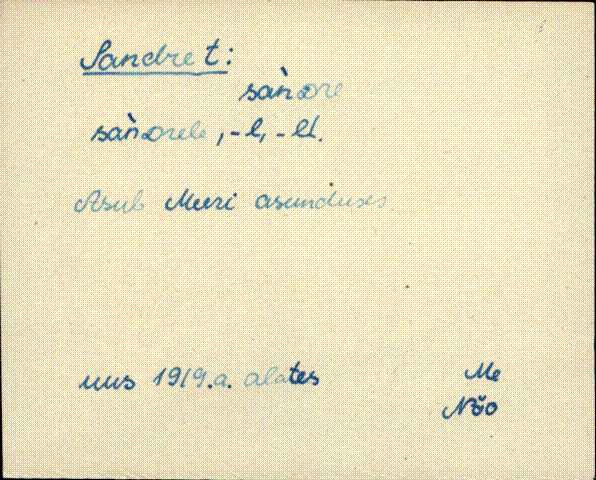 Sandre t:
sàndre
sàndrele, -l, -lt.
Asub Meeri asunduses.
uus 1919.a. alates
Me
Nõo